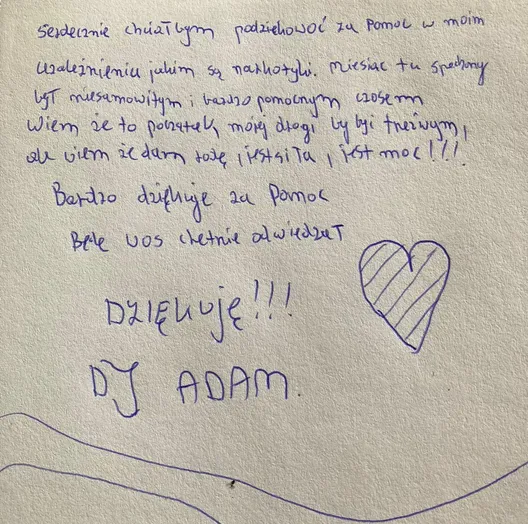 serdecznie chciałbym podziękować za pomoc w moim
uzależnieniu jakim są narkotyki. miesiąc tu spędzony
był niesamowitym i bardzo pomocnym czasem
Wiem że to początek mojej drogi by być trzeźwym,
ale wiem że dam radę, jest siła, jest moc!!!
Bardzo dziękuje za pomoc
Będe was chętnie odwiedzał
DZIĘKUJĘ!!!
DJ ADAM.